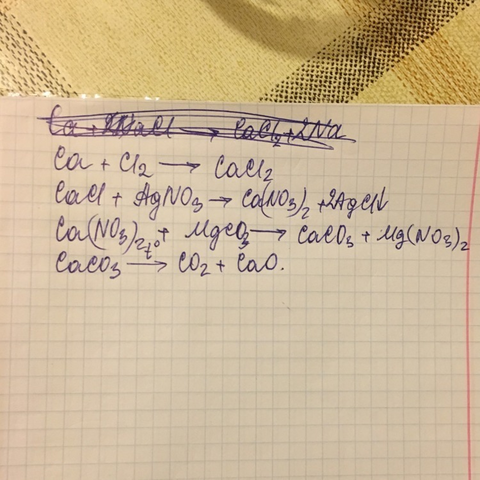 Ca + 2NaCl → CaCl₂ + 2Na
Ca + Cl₂ → CaCl₂
CaCl + AgNO₃ → Ca(NO₃)₂ + 2AgCl↓
Ca(NO₃)₂ + MgCO₃ → CaCO₃ + Mg(NO₃)₂
CaCO₃ t°→ CO₂ + CaO.